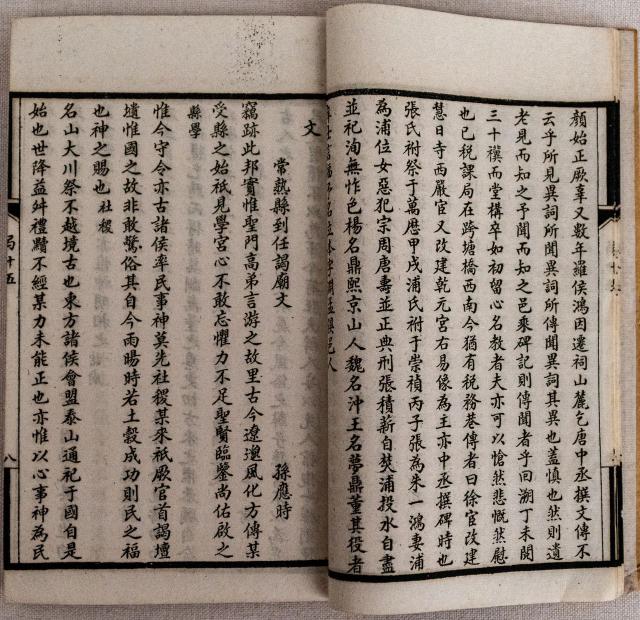 顏始正厥辜又數年羅侯鴻因遷祠山麓乞唐中丞撰文傳不
云乎所見異詞所聞異詞所傳聞異詞其異也蓋慎也然則遺
老見而知之予聞而知之邑乘碑記則傳聞者乎回溯丁未閱
三十禩而堂構卒如初留心名教者夫亦可以愴然悲慨然慰
也已稅課局在跨塘橋西南今猶有稅務巷傳者曰徐官改建
慧日寺西嚴官又改建乾元宮右易像為主亦中丞撰碑時也
張氏祔祭于萬曆甲戌浦氏祔于崇禎丙子張為朱一鴻妻浦
為浦位女惡犯宗周唐壽並正典刑張積薪自焚浦投水自盡
並祀洵無怍色楊名鼎熙京山人魏名沖王名夢鼎董其役者
邑人
文
常熟縣到任謁廟文 孫應時
竊跡此邦實惟聖門高弟言游之故里古今遼邈風化方傳某
受縣之始祇見學宮心不敢忘懼力不足聖賢臨鑒尚佑啟之
縣學
惟今守令亦古諸侯率民事神莫先社稷某來祇厥官首謁壇
壝惟國之故非敢驚俗其自今雨暘時若土穀成功則民之福
也神之賜也社稷
名山大川祭不越境古也東方諸侯會盟泰山通祀于國自是
始也世降益舛禮黷不經某力未能正也亦惟以心事神為民
八